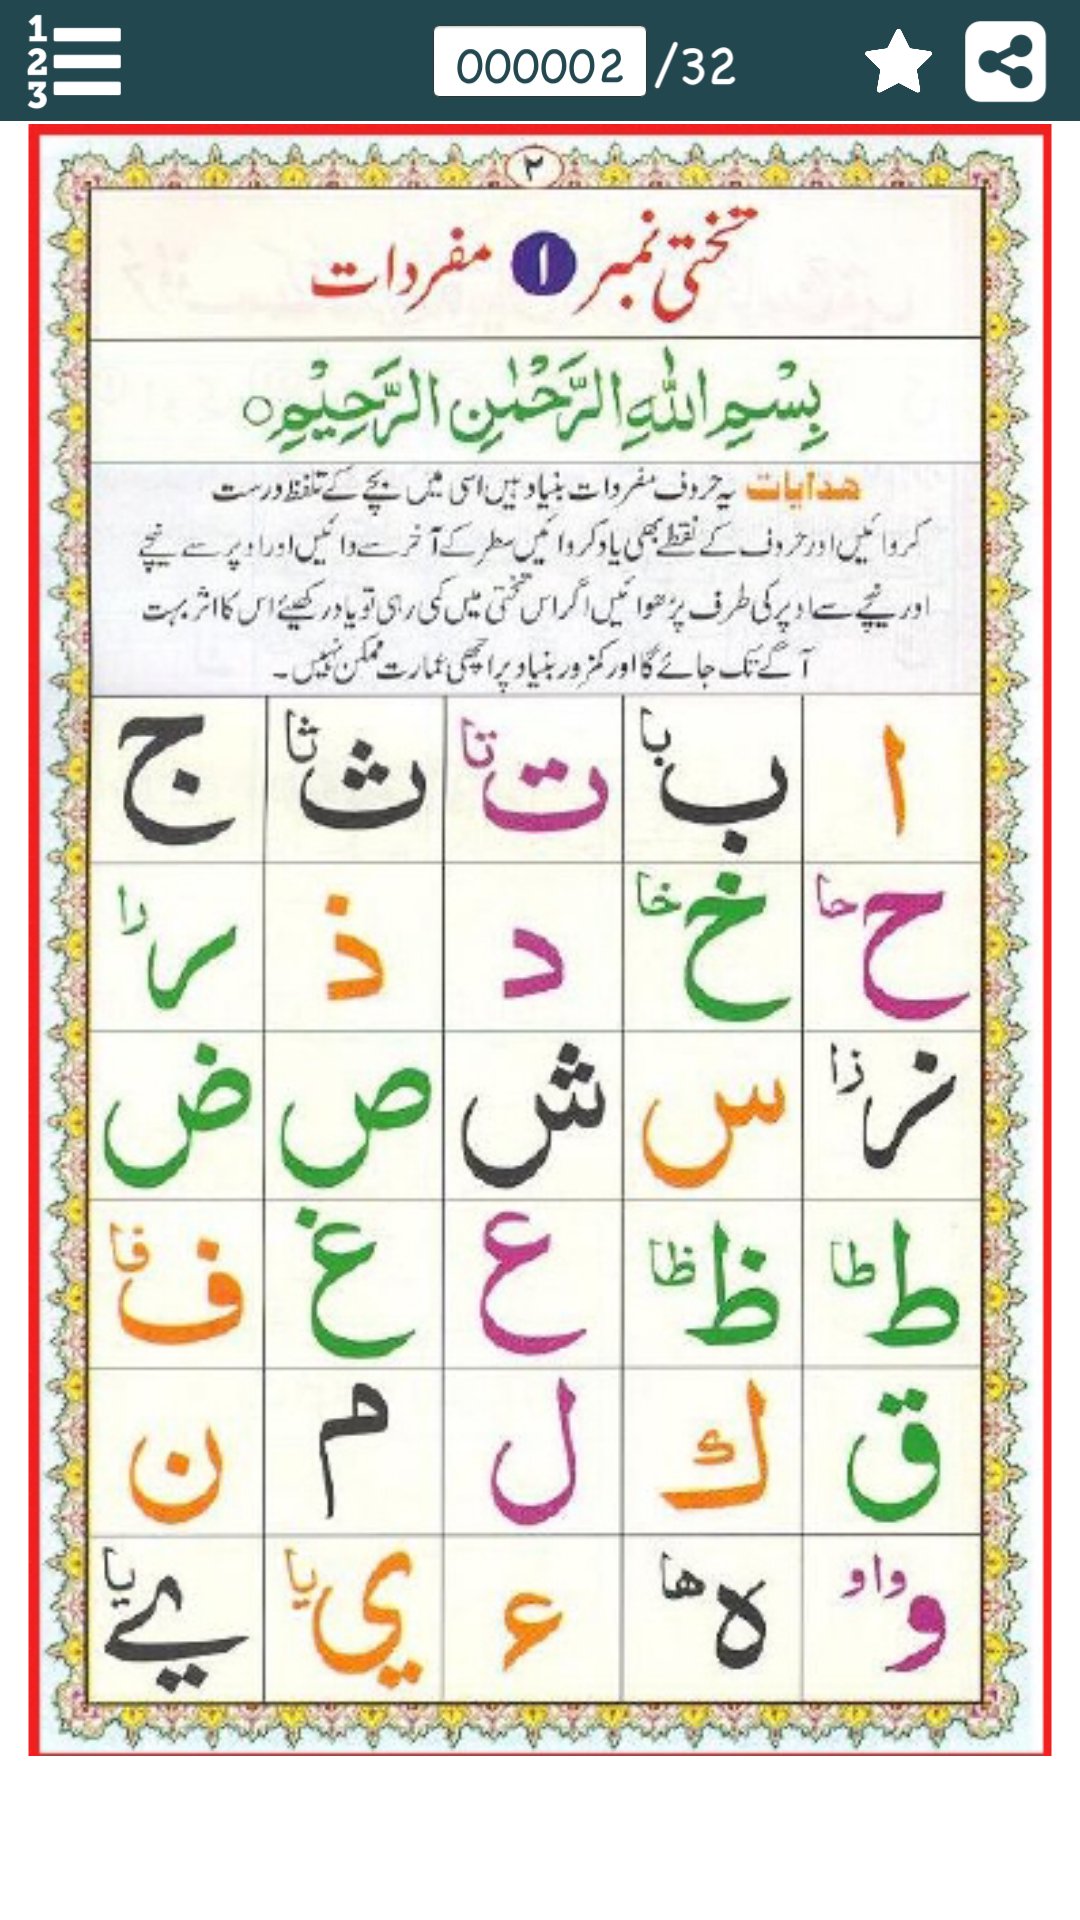 1
2
3
000002 /32
٢
تختی نمبر ١ مفردات
بِسْمِ اللّٰهِ الرَّحْمٰنِ الرَّحِيْمِ○
هدایات یہ حروف مفردات بنیاد ہیں اسی میں بچے کے تلفظ درست
کروائیں اور حروف کے نقطے بھی یاد کروائیں سطر کے آخر سے دائیں اور اوپر سے نیچے
اور نیچے سے اوپر کی طرف پڑھوائیں اگر اس تختی میں کمی رہی تو یاد رکھیئے اس کا اثر بہت
آگے تک جائے گا اور کمزور بنیاد پر اچھی عمارت ممکن نہیں۔
ا ب با ت تا ث ثا ج
ح حا خ خا د ذ ر را
ز زا س ش ص ض
ط طا ظ ظا ع غ ف فا
ق ك ل م ن
و واو ه ها ء ي يا ے يا